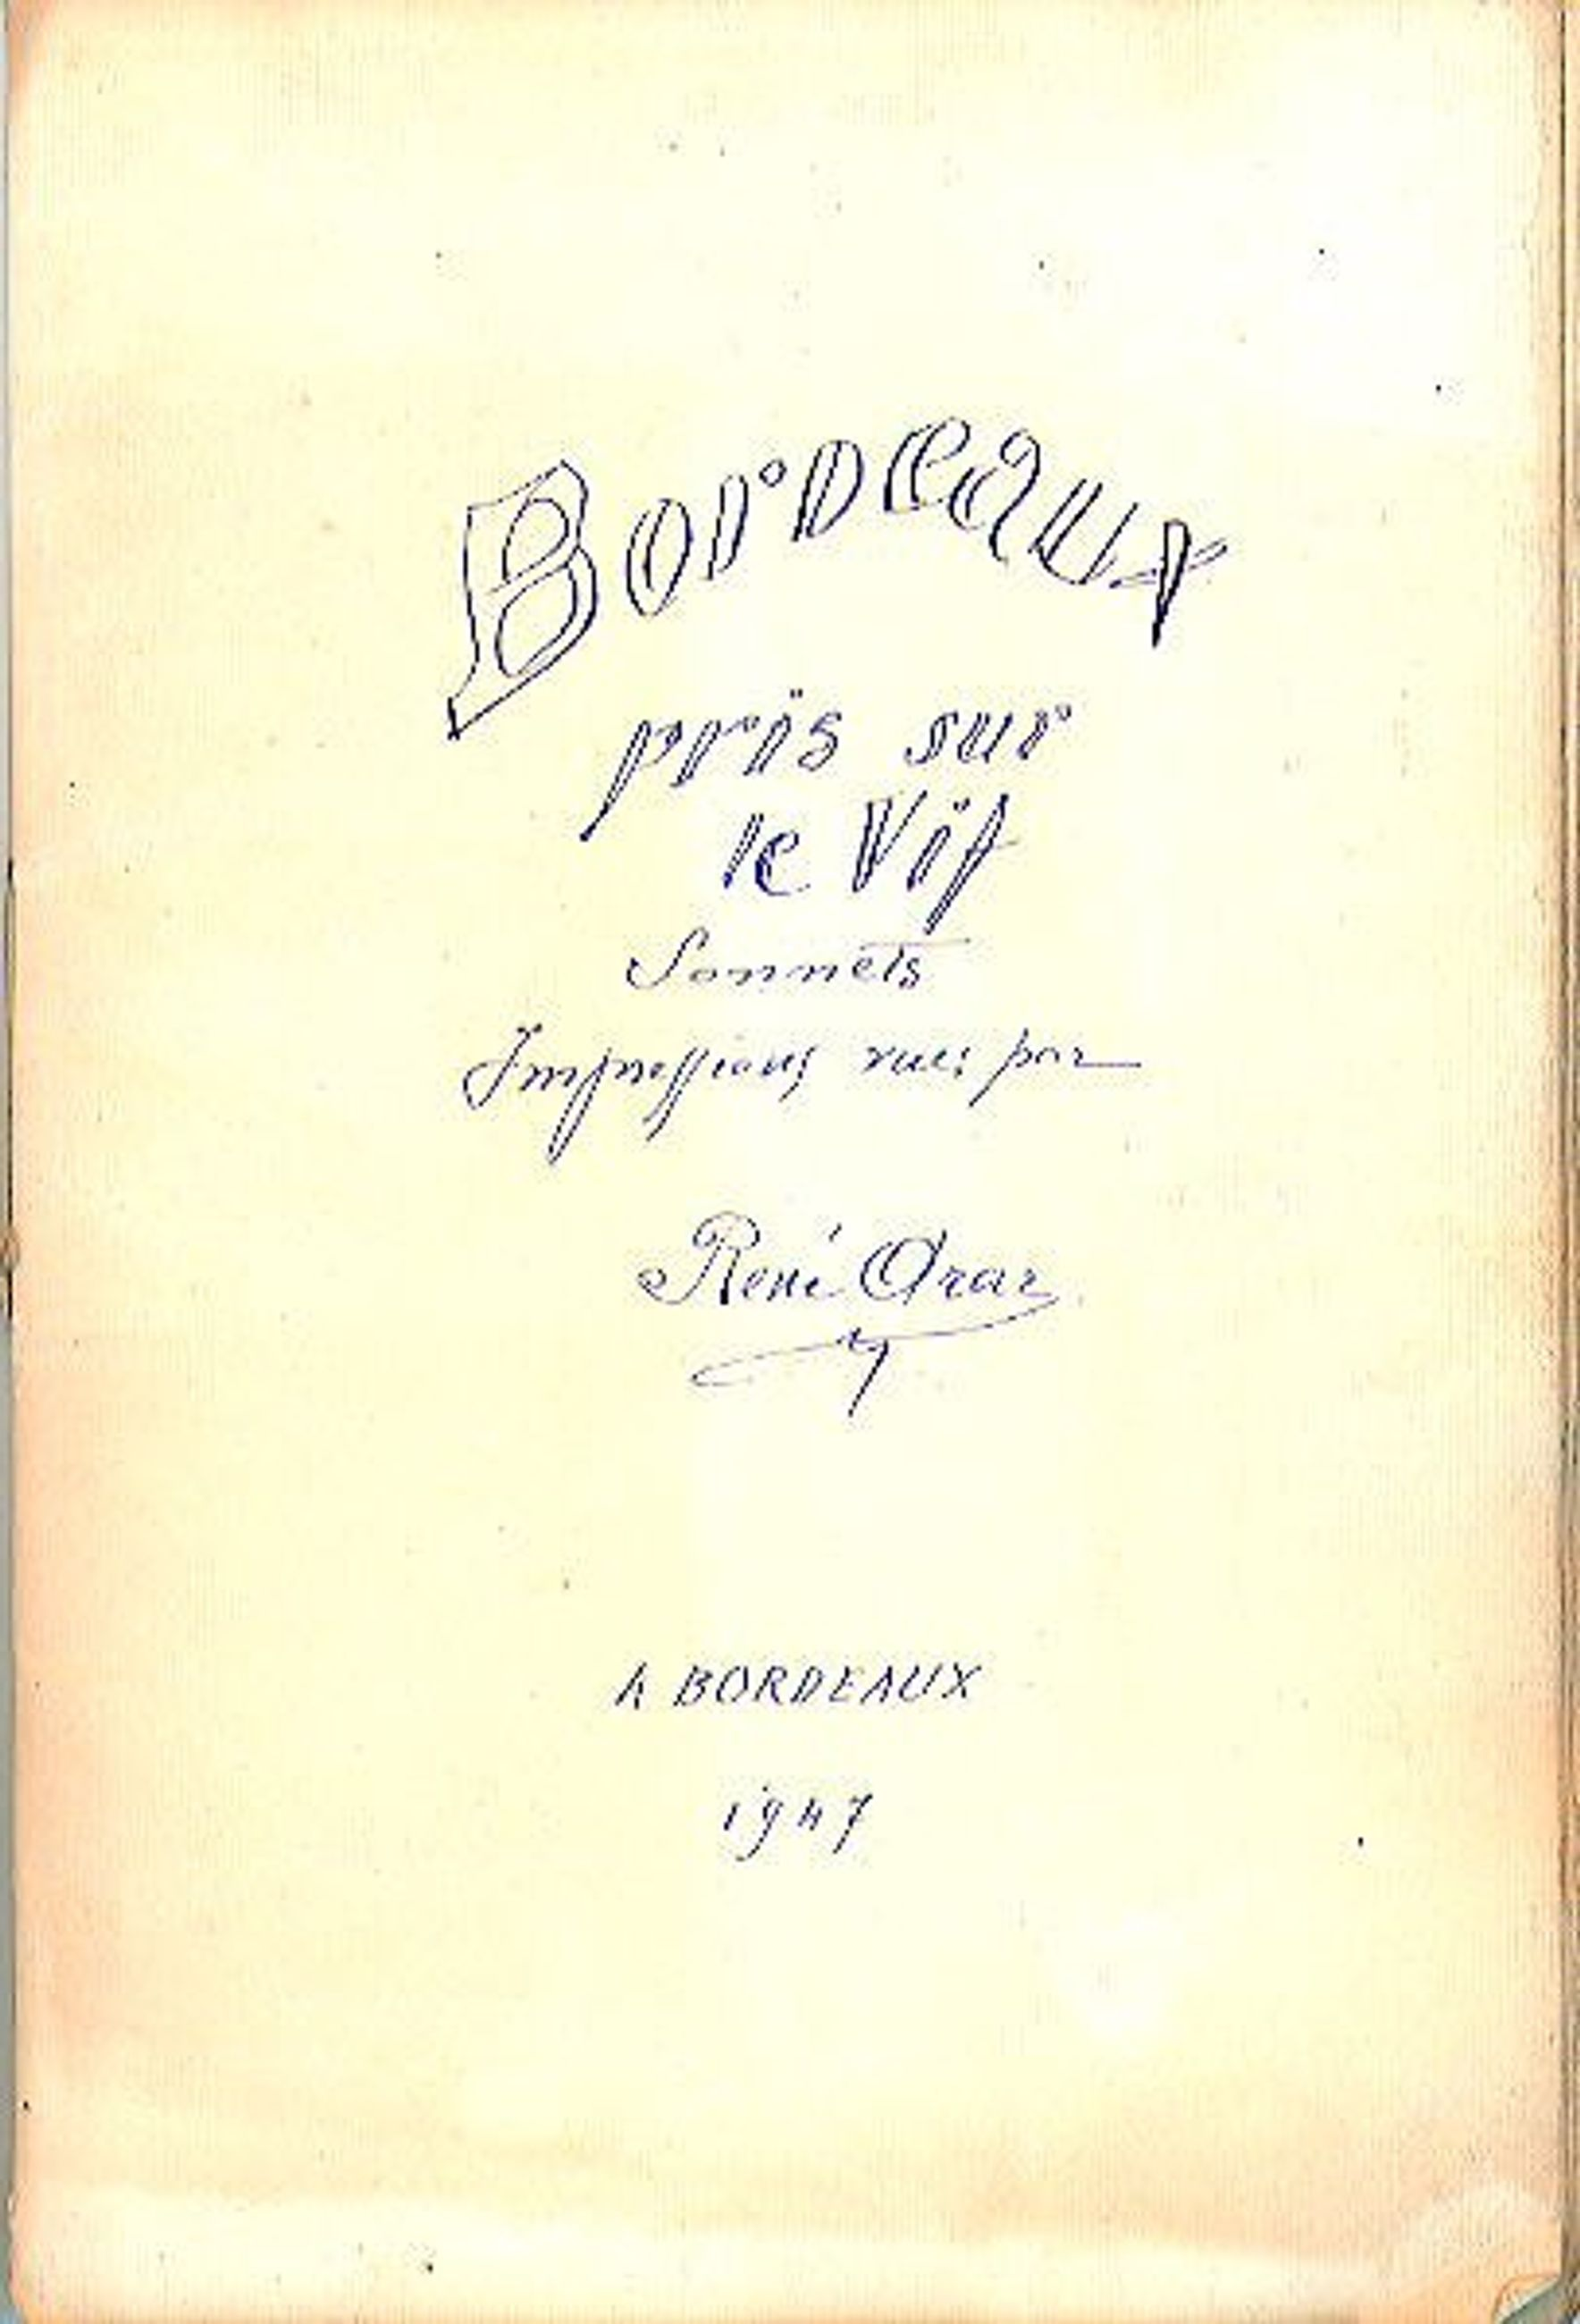 Bordeaux
pris sur
le Vif
Sonnets
Impressions vues par
René Orar
A BORDEAUX
1947